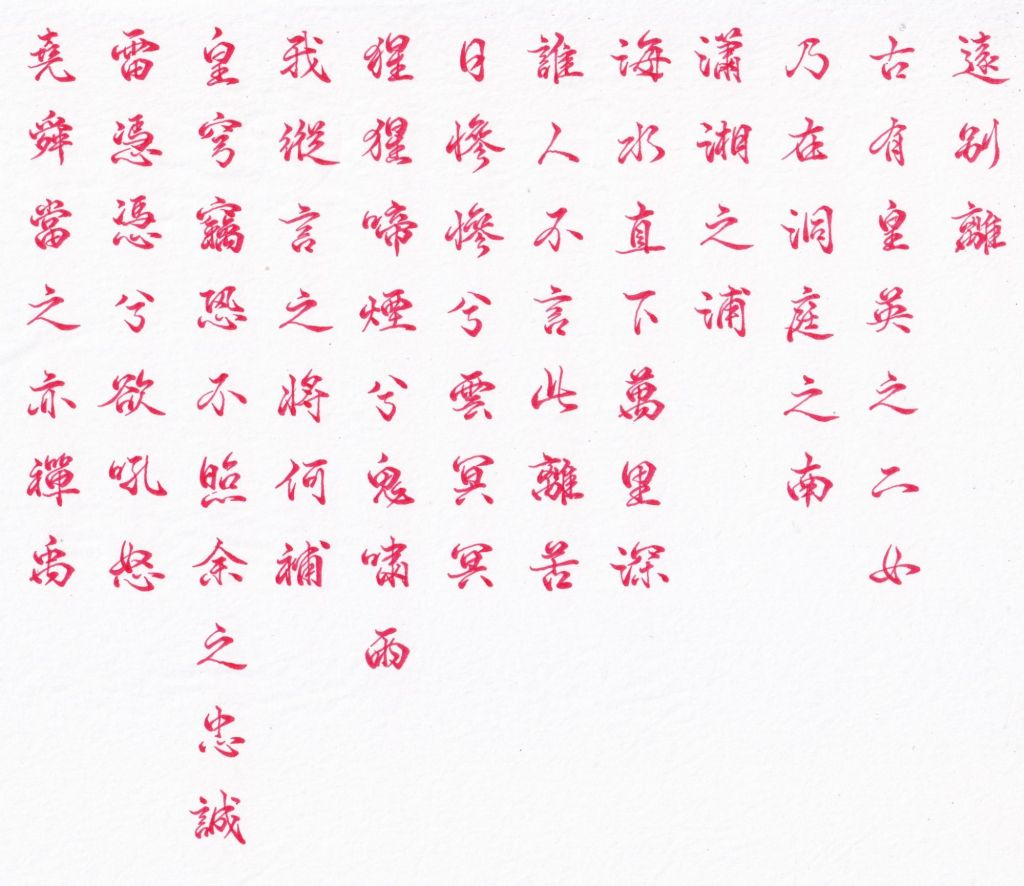 遠別離
古有皇英之二女
乃在洞庭之南
瀟湘之浦
海水直下萬里深
誰人不言此離苦
日慘慘兮雲冥冥
猩猩啼煙兮鬼嘯雨
我縱言之將何補
皇穹竊恐不照余之忠誠
雷憑憑兮欲吼怒
堯舜當之亦禪禹